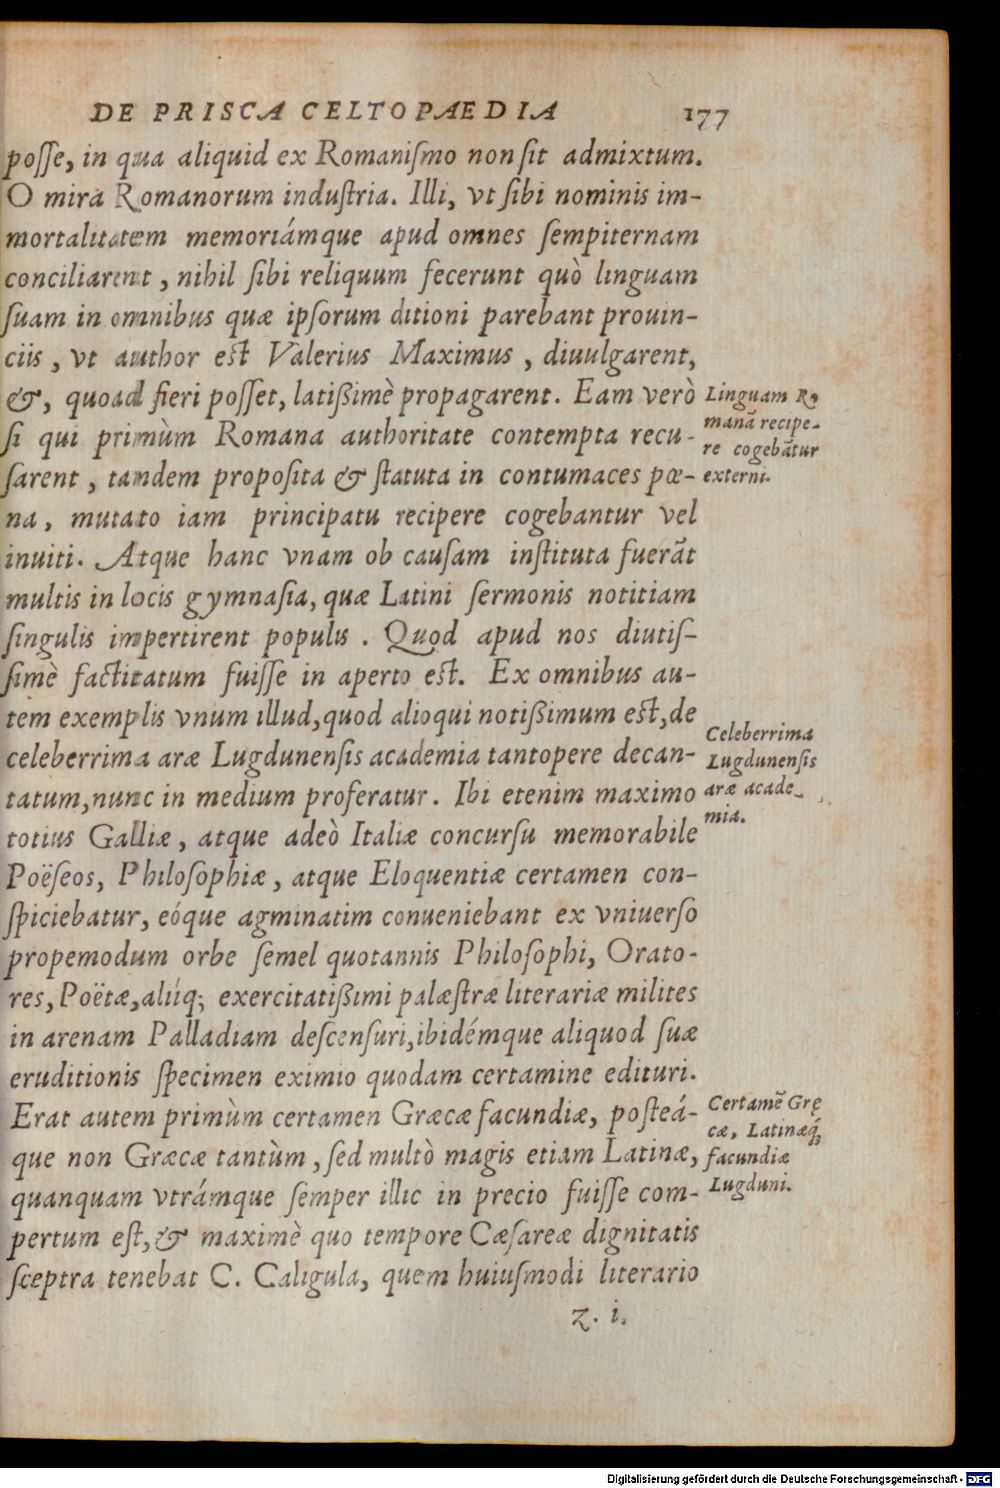 DE PRISCA CELTOPAEDIA 177
posſe, in qua aliquid ex Romaniſmo non ſit admixtum.
O mira Romanorum induſtria. Illi, vt ſibi nominis im-
mortalitatem memoriámque apud omnes ſempiternam
conciliarent, nihil ſibi reliquum fecerunt quò linguam
ſuam in omnibus quæ ipſorum ditioni parebant prouin-
ciis, vt author eſt Valerius Maximus, diuulgarent,
&, quoad fieri poſſet, latißimè propagarent. Eam verò
ſi qui primùm Romana authoritate contempta recu-
ſarent, tandem propoſita & ſtatuta in contumaces pœ-
na, mutato iam principatu recipere cogebantur vel
inuiti. Atque hanc vnam ob cauſam inſtituta fuerãt
multis in locis gymnaſia, quæ Latini ſermonis notitiam
ſingulis impertirent populis. Quod apud nos diutiſ-
ſimè factitatum fuiſſe in aperto eſt. Ex omnibus au-
tem exemplis vnum illud, quod alioqui notißimum eſt, de
celeberrima aræ Lugdunenſis academia tantopere decan-
tatum, nunc in medium proferatur. Ibi etenim maximo
totius Galliæ, atque adeò Italiæ concurſu memorabile
Poëſeos, Philoſophiæ, atque Eloquentiæ certamen con-
ſpiciebatur, eóque agminatim conueniebant ex vniuerſo
propemodum orbe ſemel quotannis Philoſophi, Orato-
res, Poëtæ, aliíq; exercitatißimi palæſtræ literariæ milites
in arenam Palladiam deſcenſuri, ibidémque aliquod ſuæ
eruditionis ſpecimen eximio quodam certamine edituri.
Erat autem primùm certamen Græcæ facundiæ, poſteá-
que non Græcæ tantùm, ſed multò magis etiam Latinæ,
quanquam vtrámque ſemper illic in precio fuiſſe com-
pertum eſt, & maximè quo tempore Cæſareæ dignitatis
ſceptra tenebat C. Caligula, quem huiuſmodi literario
z. i.
Linguam Ro
manã recipe-
re cogebãtur
externi.
Celeberrima
Lugdunenſis
aræ acade-
mia.
Certamẽ Grę
cæ, Latinæq́;
facundiæ
Lugduni.
Digitalisierung gefördert durch die Deutsche Forschungsgemeinschaft - DFG